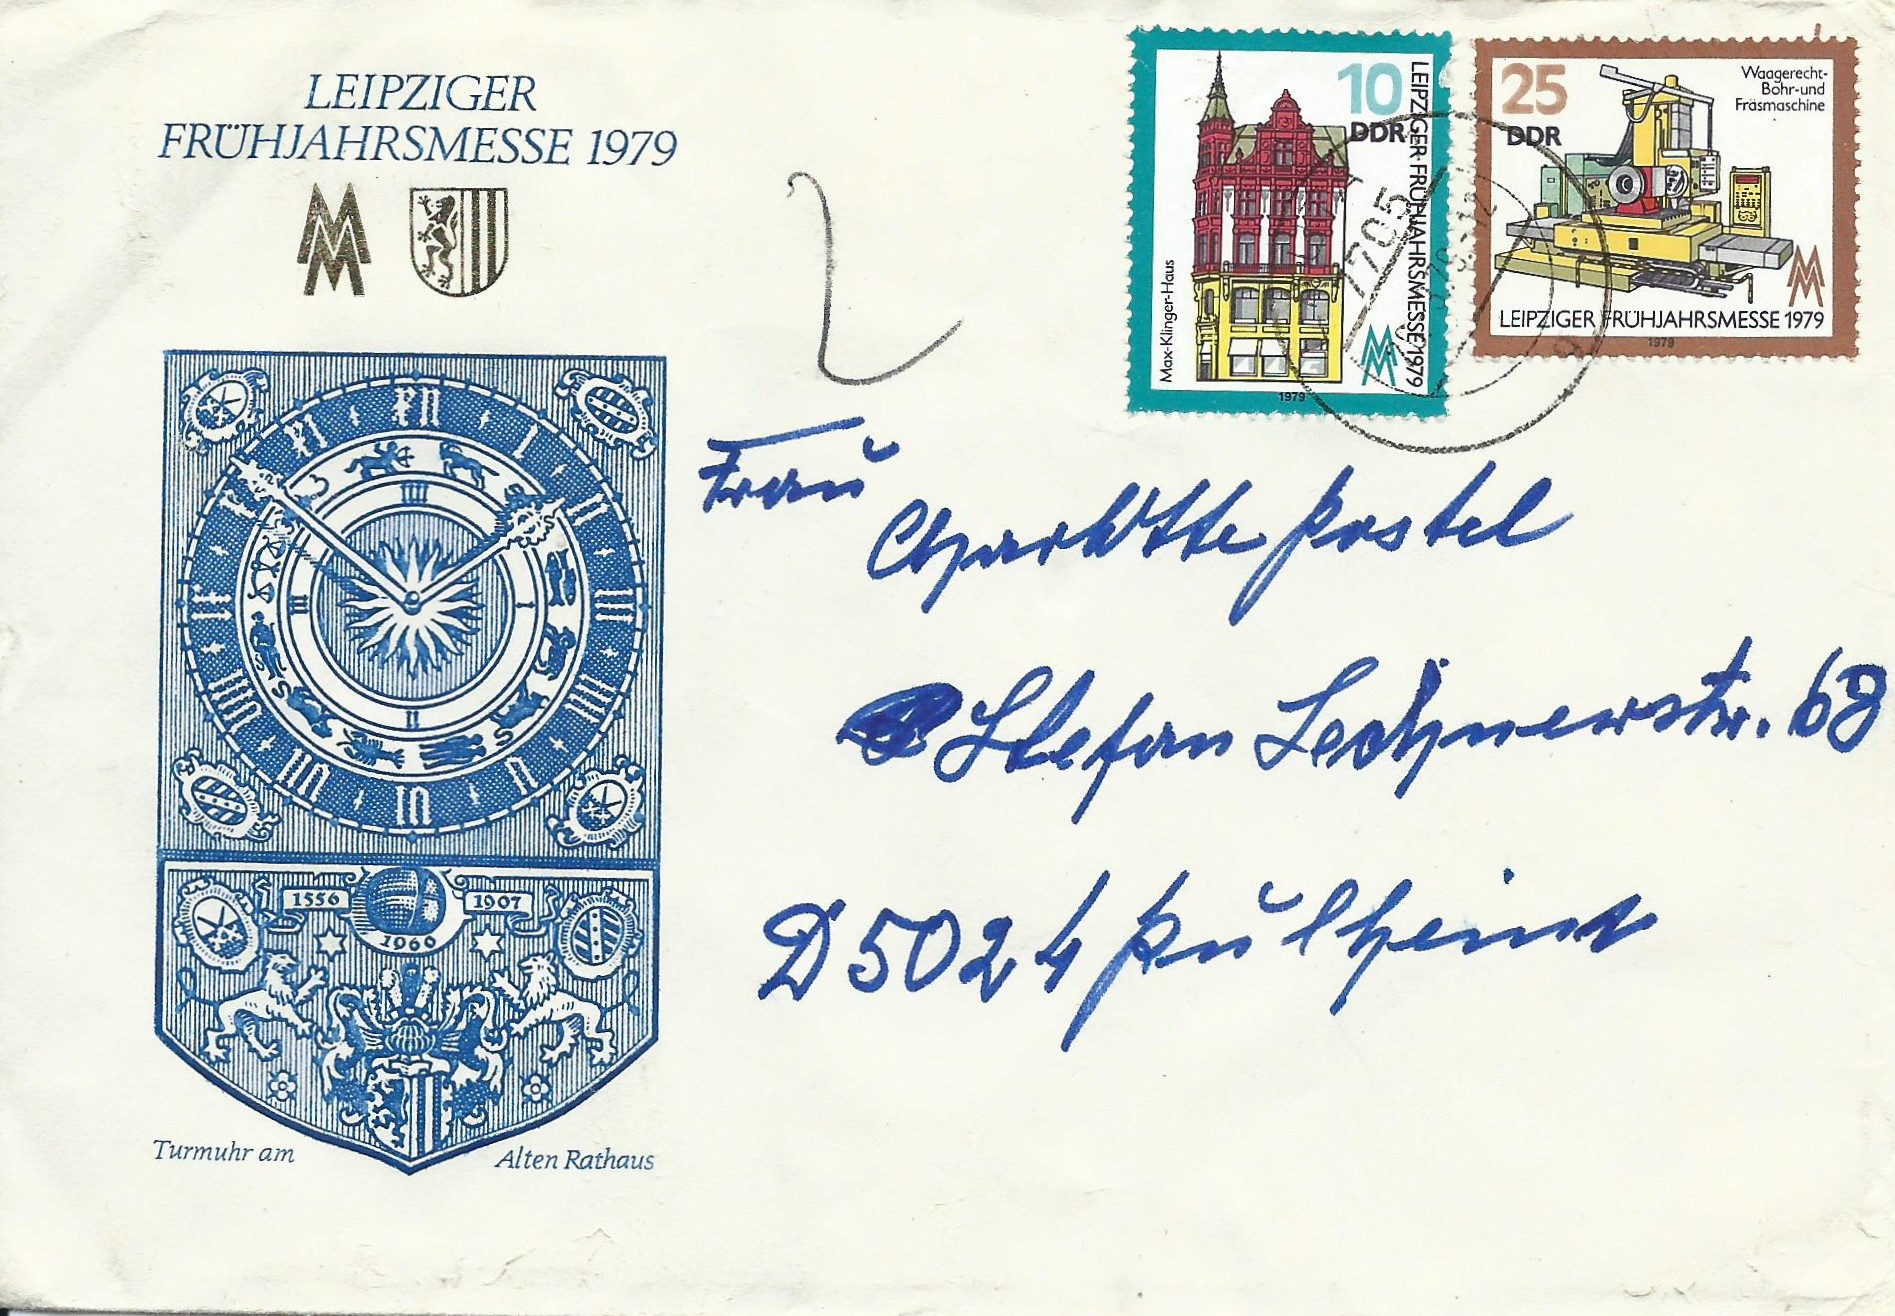 LEIPZIGER
FRÜHJAHRSMESSE 1979
10
DDR
LEIPZIGER FRÜHJAHRSMESSE 1979
Max-Klinger-Haus
1979
25
DDR
Waagerecht-
Bohr- und
Fräsmaschine
LEIPZIGER FRÜHJAHRSMESSE 1979
1979
7705
Frau
Charlotte Postel
Stefan Lochnerstr. 68
D 5024 Pulheim
1556
1907
1960
Turmuhr am
Alten Rathaus